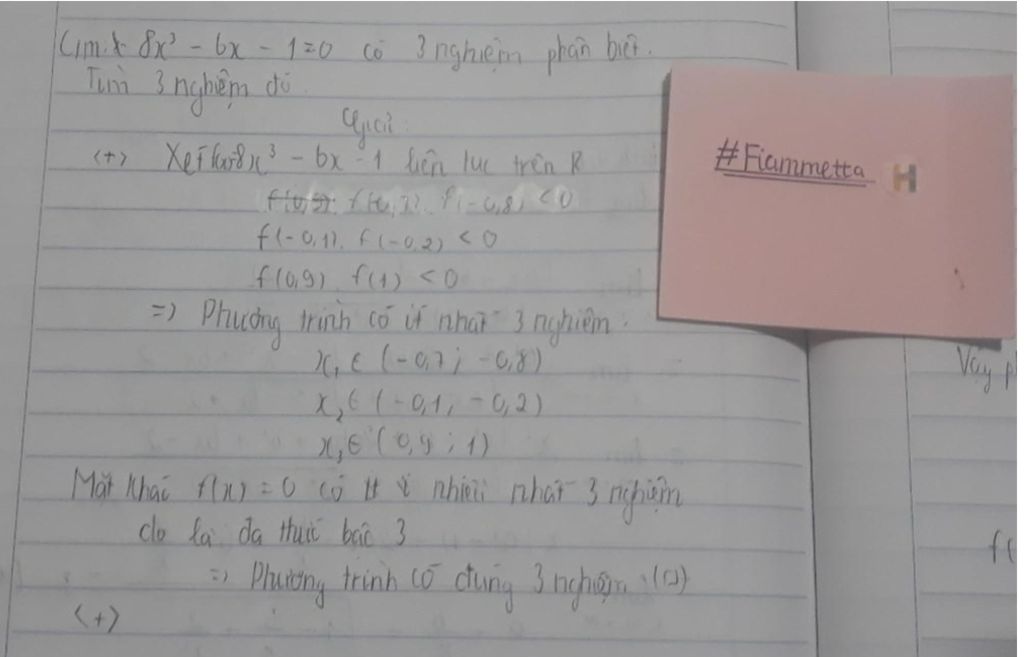 C/m: 8x³ - 6x - 1 = 0 có 3 nghiệm phân biệt.
Tìm 3 nghiệm đó.
Giải:
<+> Xét f(x) = 8x³ - 6x - 1 liên tục trên R
f(-0,7). f(-0,8) < 0
f(-0,1). f(-0,2) < 0
f(0,9) f(1) < 0
=> Phương trình có ít nhất 3 nghiệm:
x₁ ∈ (-0,7; -0,8)
x₂ ∈ (-0,1; -0,2)
x₃ ∈ (0,9; 1)
Mặt khác f(x) = 0 có nhiều nhất 3 nghiệm
do là đa thức bậc 3
=> Phương trình có đúng 3 nghiệm.
<+>
#Fiammetta H
Vậy p
f(